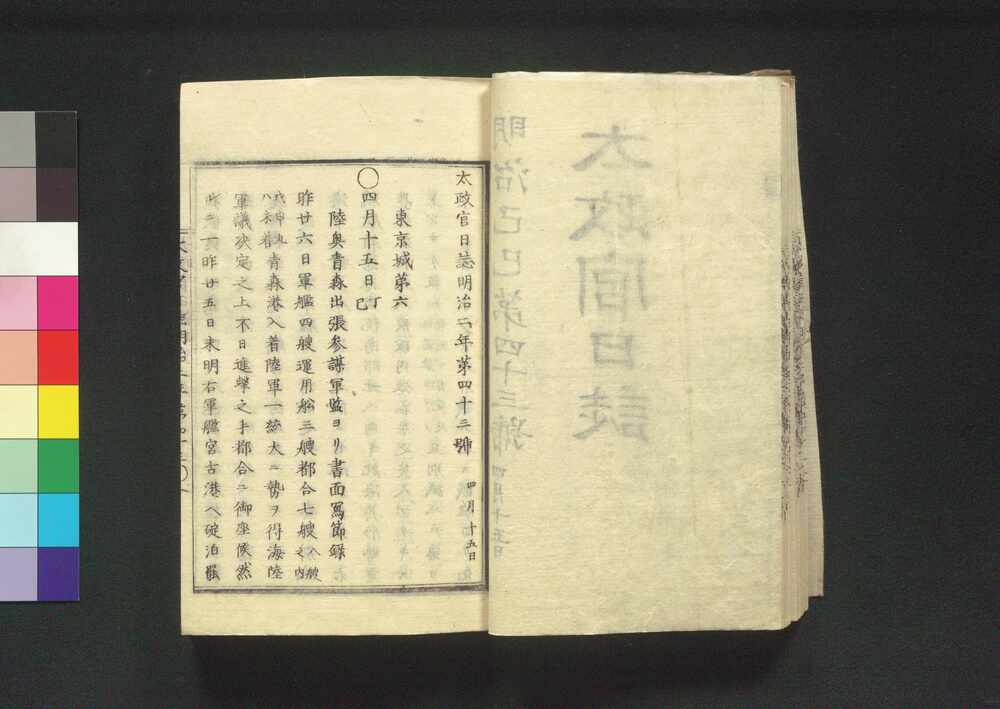 太政官日誌
明治己巳第四十三號
四月十五日
太政官日誌明治二年第四十三號
四月十五日
東京城第六
〇四月十五日丁巳
陸奥青森出張參謀軍監ヨリ書面寫節録
昨廿六日軍艦四艘運用舩三艘都合七艘之内
八未着青森港入着陸軍一統大ニ勢ヲ得海陸
軍議决定之上不日進撃之手都合ニ御座候然
昨廿五日未明右軍艦宮古港へ碇泊罷